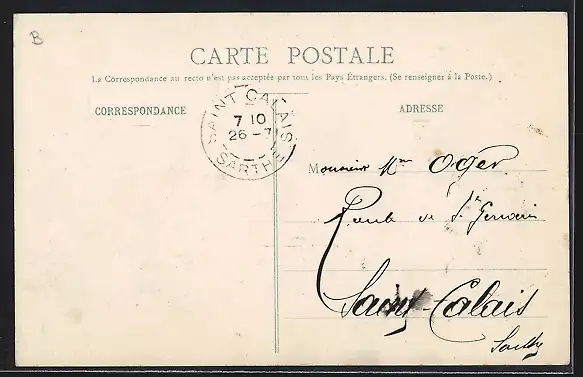 B
CARTE POSTALE
La Correspondance au recto n'est pas acceptée par tous les Pays Étrangers. (Se renseigner à la Poste.)
CORRESPONDANCE
ADRESSE
SAINT CALAIS
7 10
26 - 7
SARTHE
Monsieur Mme Oger
Route de St Gervais
Saint-Calais
Sarthe